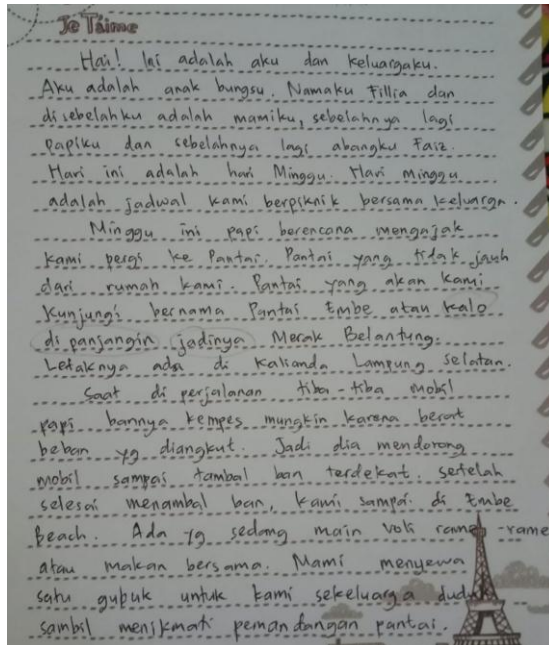 Je T'aime
Hai! Ini adalah aku dan keluargaku.
Aku adalah anak bungsu. Namaku Fillia dan
disebelahku adalah mamiku, sebelahnya lagi
papiku dan sebelahnya lagi abangku Faiz.
Hari ini adalah hari Minggu. Hari minggu
adalah jadwal kami berpiknik bersama keluarga.
Minggu ini papi berencana mengajak
kami pergi ke Pantai. Pantai yang tidak jauh
dari rumah kami. Pantai yang akan kami
kunjungi bernama Pantai Embe atau kalo
di panjangin jadinya Merak Belantung.
Letaknya ada di Kalianda Lampung Selatan.
Saat di perjalanan tiba-tiba mobil
papi bannya kempes mungkin karena berat
beban yg diangkut. Jadi dia mendorong
mobil sampai tambal ban terdekat. setelah
selesai menambal ban, kami sampai di Embe
Beach. Ada yg sedang main voli rame-rame
atau makan bersama. Mami menyewa
satu gubuk untuk kami sekeluarga duduk
sambil menikmati pemandangan pantai.